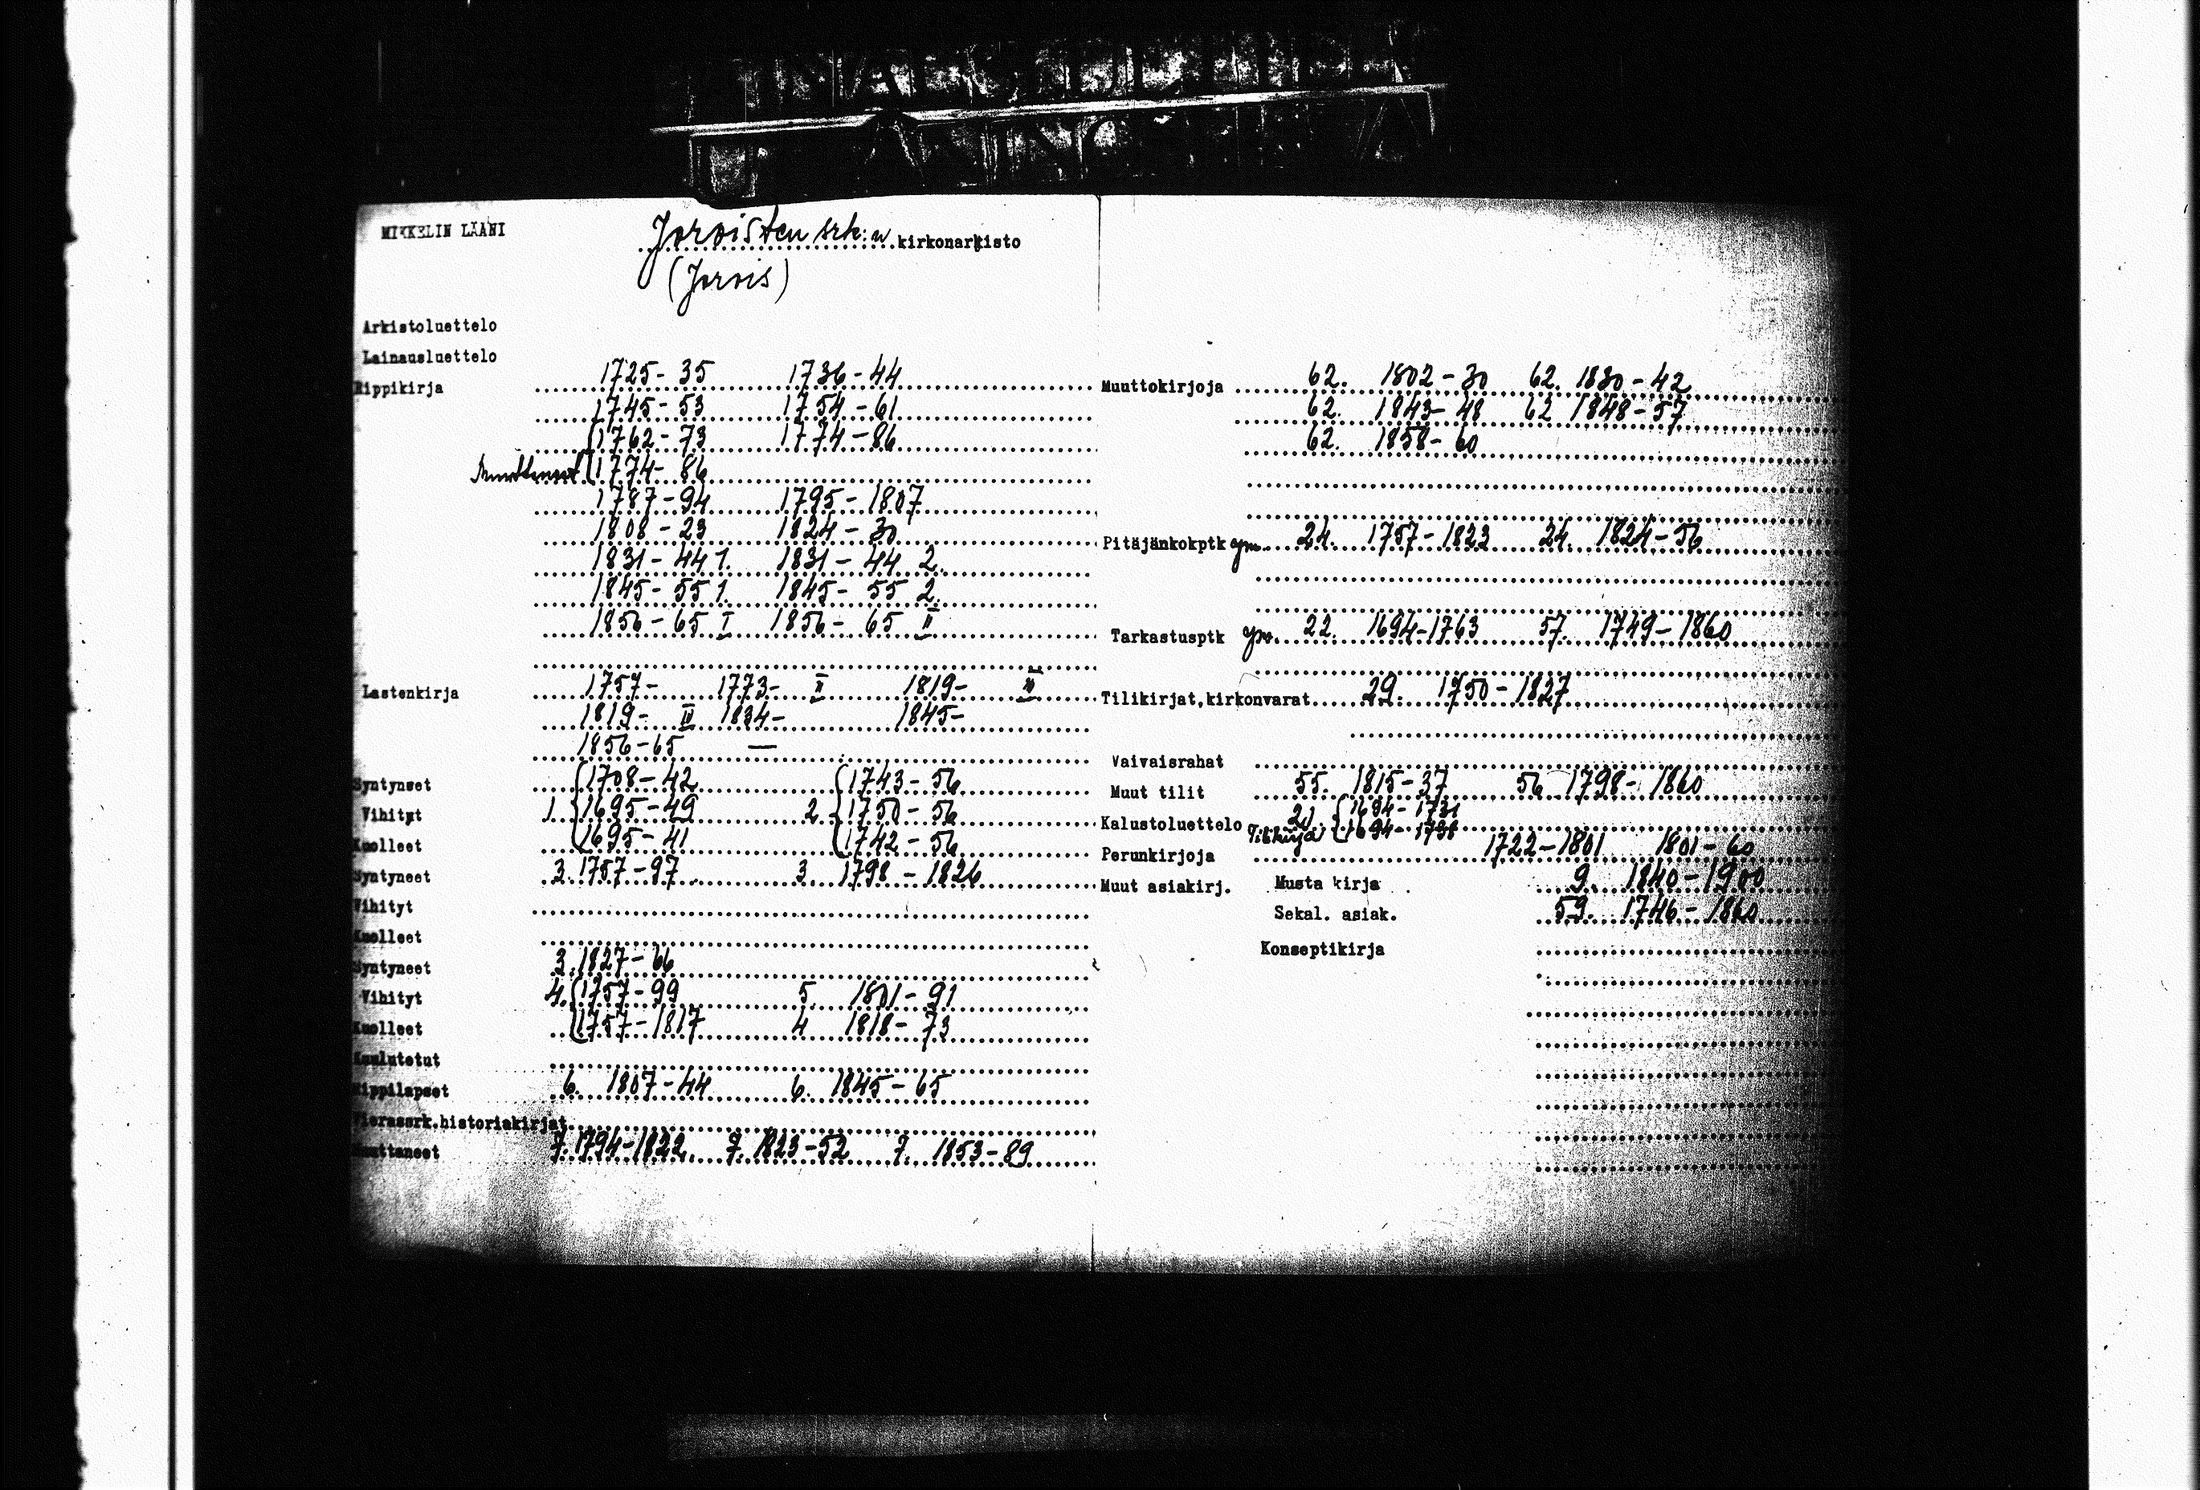 MIKKELIN LÄÄNI
Joroisten srk:n kirkonarkisto
(Jorois)
Arkistoluettelo
Lainausluettelo
Rippikirja 1725-35 1736-44
1745-53 1754-61
1762-73 1774-86
1774-86
1787-94 1795-1807
1808-23 1824-30
1831-44 1. 1831-44 2.
1845-55 1. 1845-55 2.
1856-65 I 1856-65 II
Lastenkirja 1757- 1773- II 1819- III
1819- IV 1834- 1845-
1856-65 —
Syntyneet 1708-42 1743-56
Vihityt 1. 1695-49 2. 1750-56
Kuolleet 1695-41 1742-56
Syntyneet 3. 1757-97 3. 1798-1826
Vihityt
Kuolleet
Syntyneet 3. 1827-66
Vihityt 4. 1757-99 5. 1801-91
Kuolleet 1757-1817 4 1818-73
Kuulutetut
Rippilapset 6. 1807-44 6. 1845-65
Vierassrk.historiakirjat
Muuttaneet 7. 1794-1822 7. 1823-52 7. 1853-89
Muuttokirjoja 62. 1802-30 62. 1830-42
62. 1843-48 62 1848-57
62. 1858-60
Pitäjänkokptk ym. 24. 1757-1823 24. 1824-56
Tarkastusptk ym. 22. 1694-1763 57. 1749-1860
Tilikirjat,kirkonvarat 29. 1750-1827
Vaivaisrahat
Muut tilit 55. 1815-37 56 1798-1860
Kalustoluettelo Tilikirja 1694-1731
1694-1798
Perunkirjoja 1722-1801 1801-60
Muut asiakirj. Musta kirja 9. 1840-1900
Sekal. asiak. 59. 1746-1860
Konseptikirja